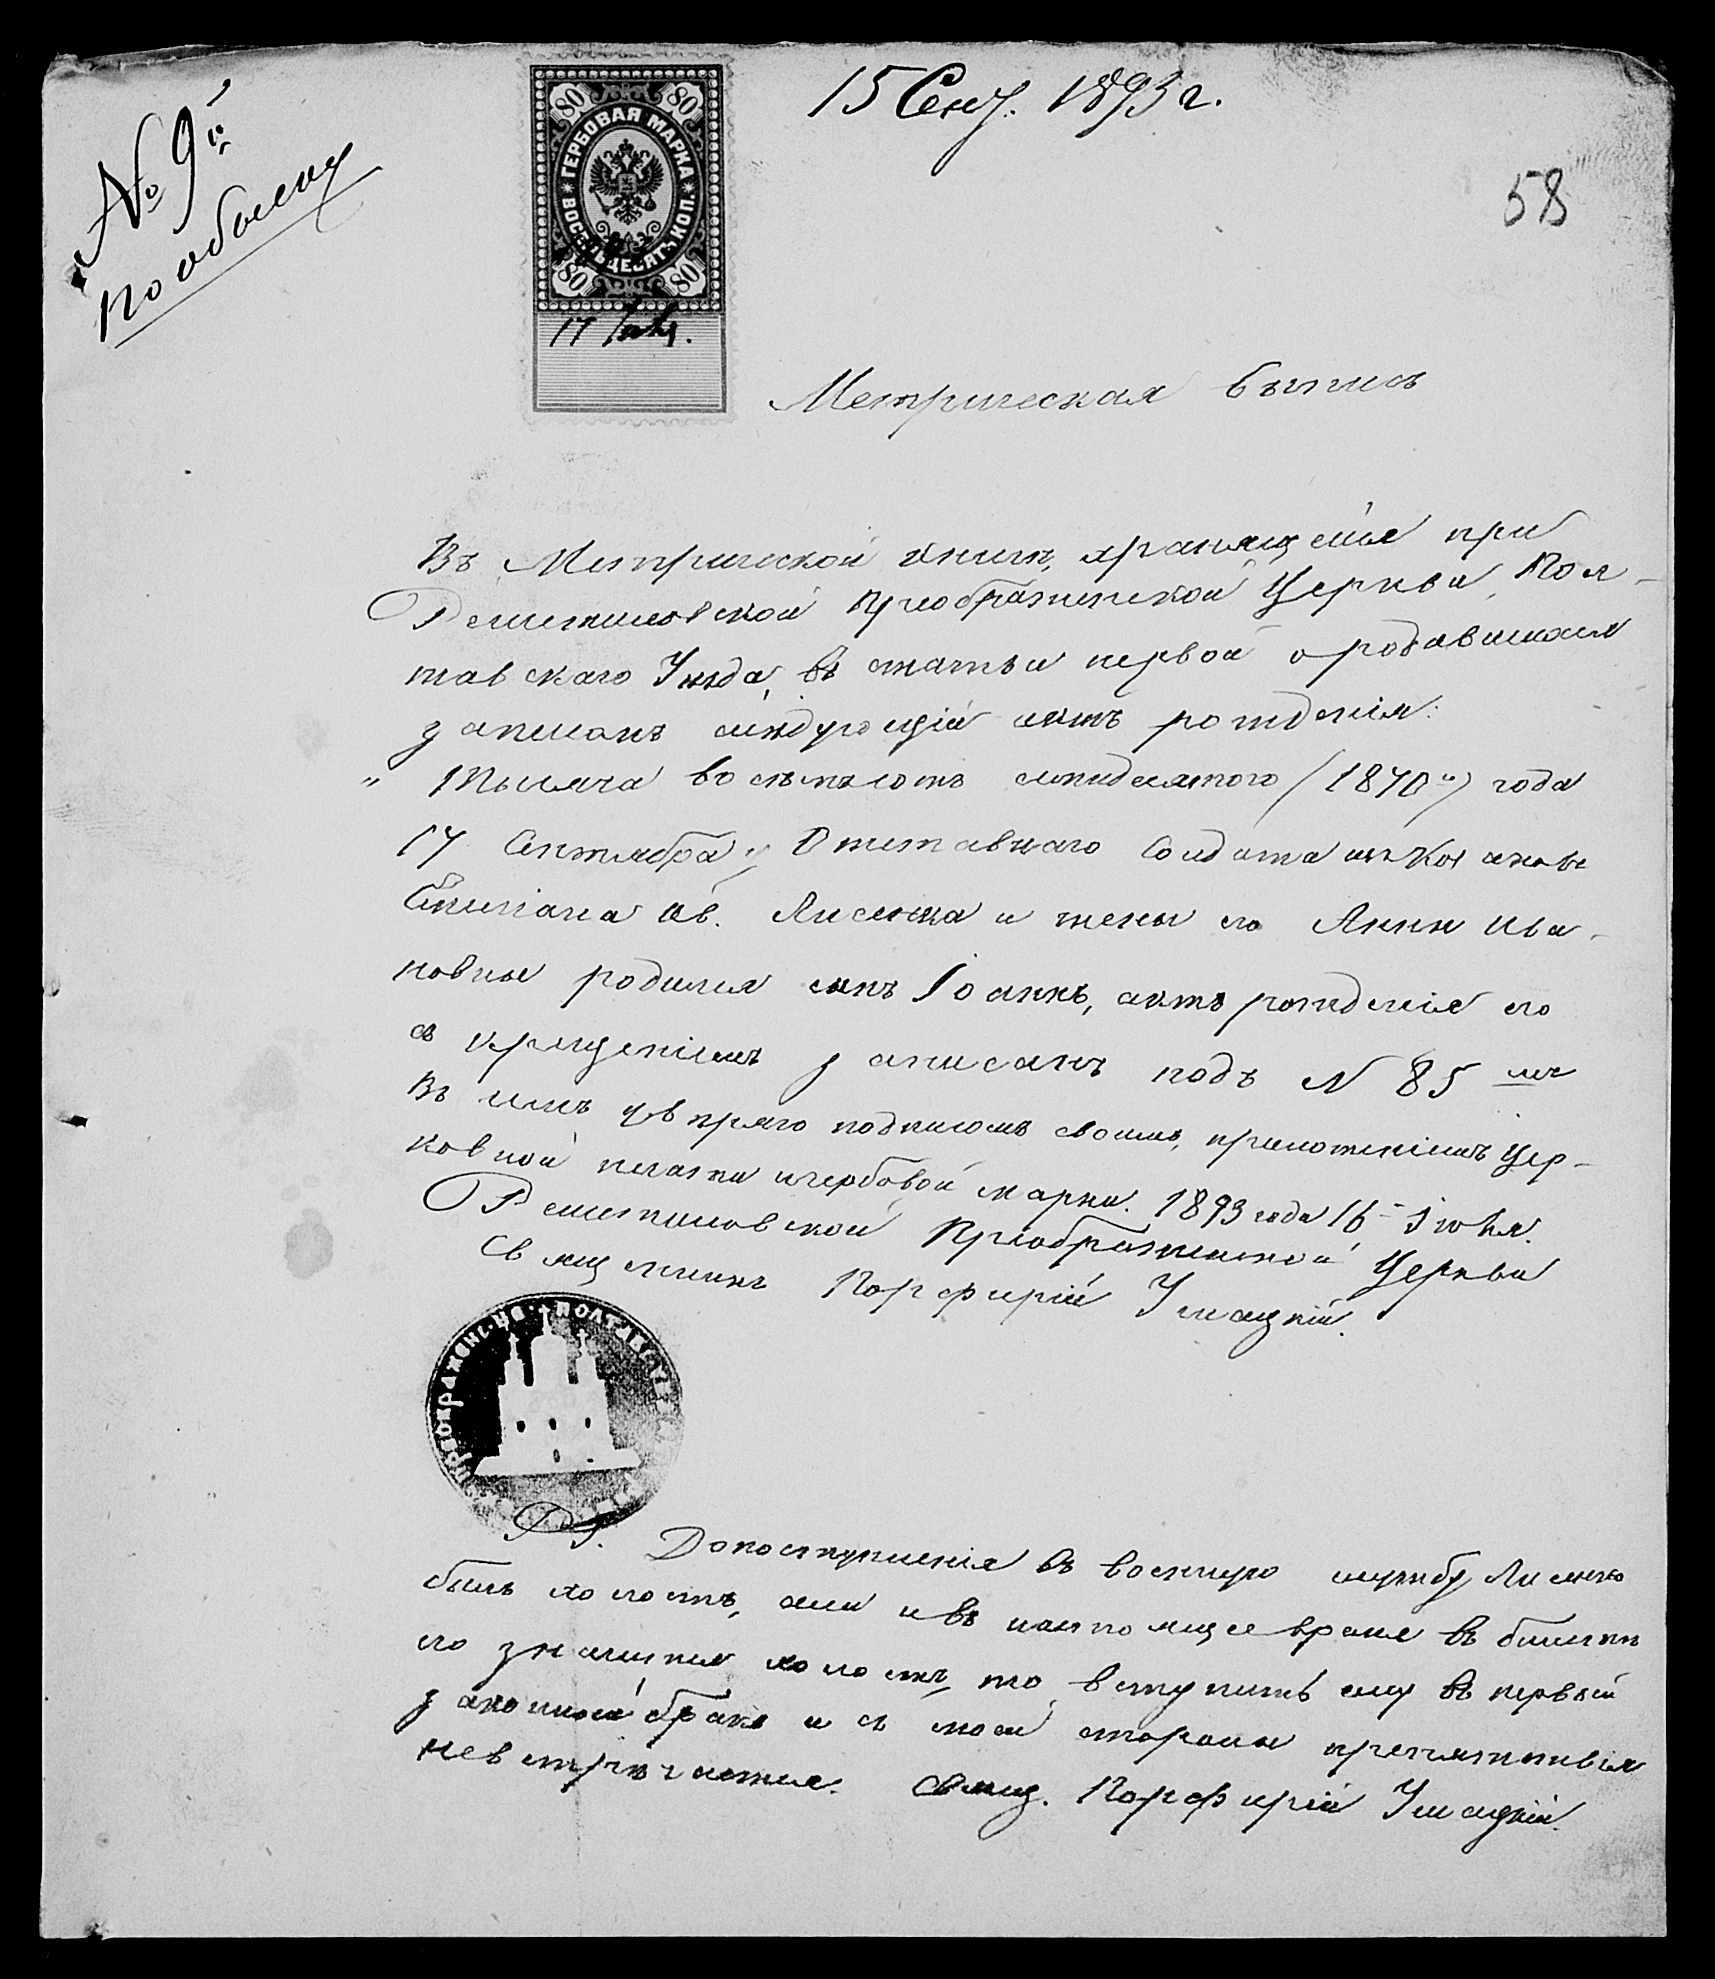 15 Сент. 1893 г.
№ 9й
по обыску
58
80 80
ГЕРБОВАЯ МАРКА
ВОСЕМЬДЕСЯТЪ КОП.
80 80
17
Метрическая выпись
Въ Метрической книгѣ, хранящейся при
Решетиловской Преображенской Церкви, Пол-
тавскаго Уѣзда, въ статьи первой о родавшихся
записанъ слѣдующій актъ рожденія:
" Тысяча восемьсотъ семидесятого (1870 г) года
17 Сентября у Отставнаго Солдата
Ив. Лисенка и жены его Анны Ива-
новны родился сынъ Іоаннъ, актъ рожденія его
съ крещеніемъ записанъ подъ N 85 мъ
Въ чемъ подписомъ своимъ, приложеніемъ Цер-
ковной печати и гербовой марки. 1893 года 16 Іюля.
Решетиловской Преображенской Церкви
Священникъ Порфирій Ушацкій.
ПРЕОБРАЖЕНС. ЦВ. ПОЛТАВС.
PS. До поступленія въ военную службу Лисенко
былъ холостъ, если и въ настоящее время въ билетѣ
его значится холостъ, то вступить ему въ первый
законный бракъ и съ моей стороны препятствія
не встрѣчается. Свящ. Порфирій Ушацкій.